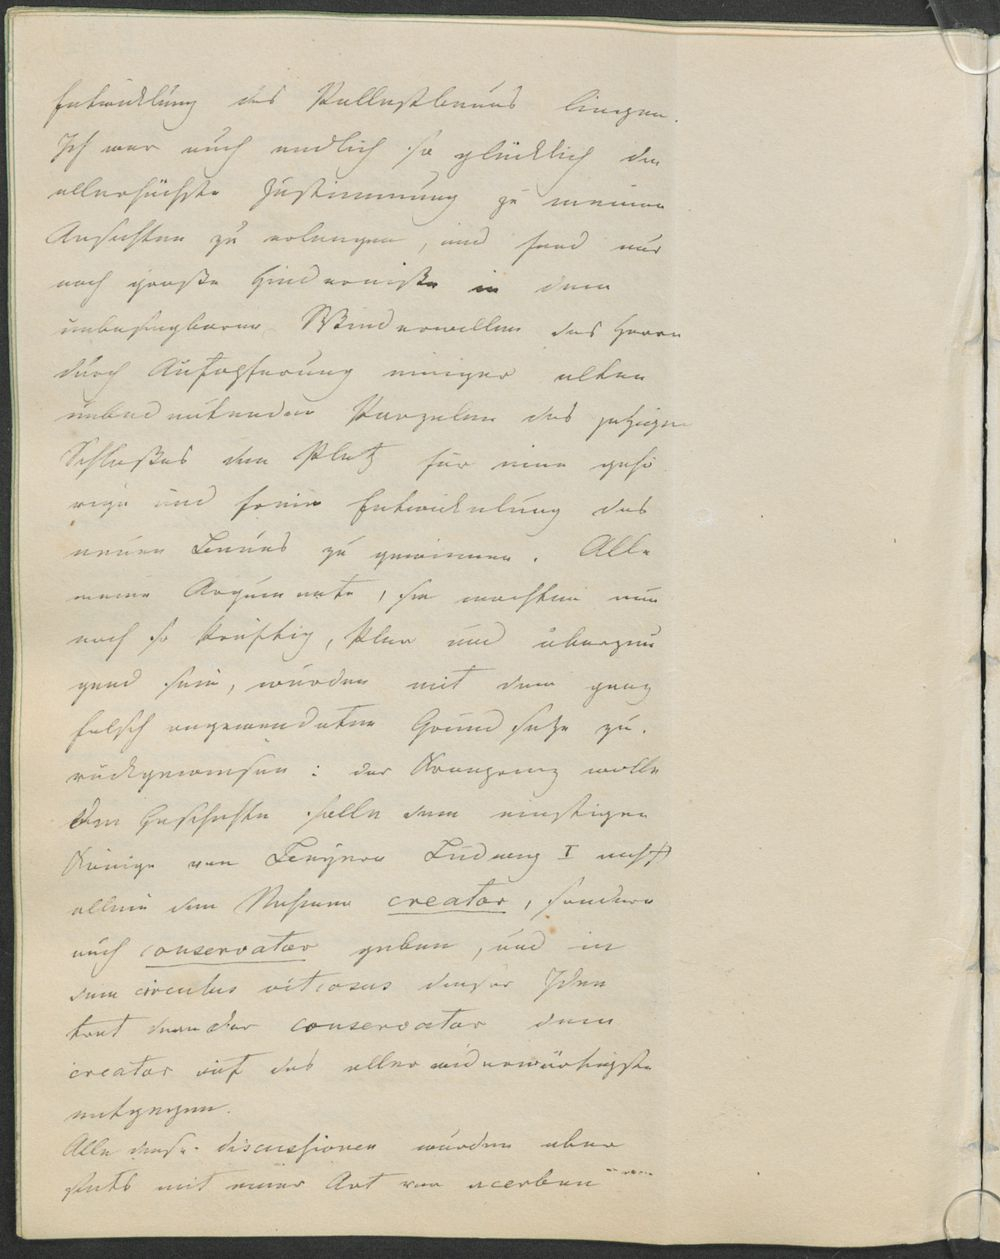 Entwicklung des Pallastbaues liegen.
Ich war auch endlich so glücklich die
allerhöchste Zustimmung zu meinen
Ansichten zu erlangen, und fand nur
noch große Hinderniße in dem
unbesiegbaren Wiederwillen des Herrn
durch Aufopferung einiger alten
unbedeutenden Parzelen des jetzigen
Schloßes den Platz für eine gehö
rige und freie Entwickelung des
neuen Baues zu gewinnen. Alle
meine Argumente, sie mochten nun
noch so kräftig, klar und überzeu
gend sein, wurden mit dem ganz
falsch angewendeten Grundsatze zu-
rückgewiesen: der Kronprinz wolle
die Geschichte solle dem einstigen
Könige von Bayern Ludwig I nicht
allein den Nahmen creator, sondern
auch conservator geben, und in
dem circulus vitiosus dieser Ideen
trat denn der conservator dem
creator auf das allerwiderwärtigste
entgegen.
Alle diese discussionen wurden aber
stets mit einer Art von acerben